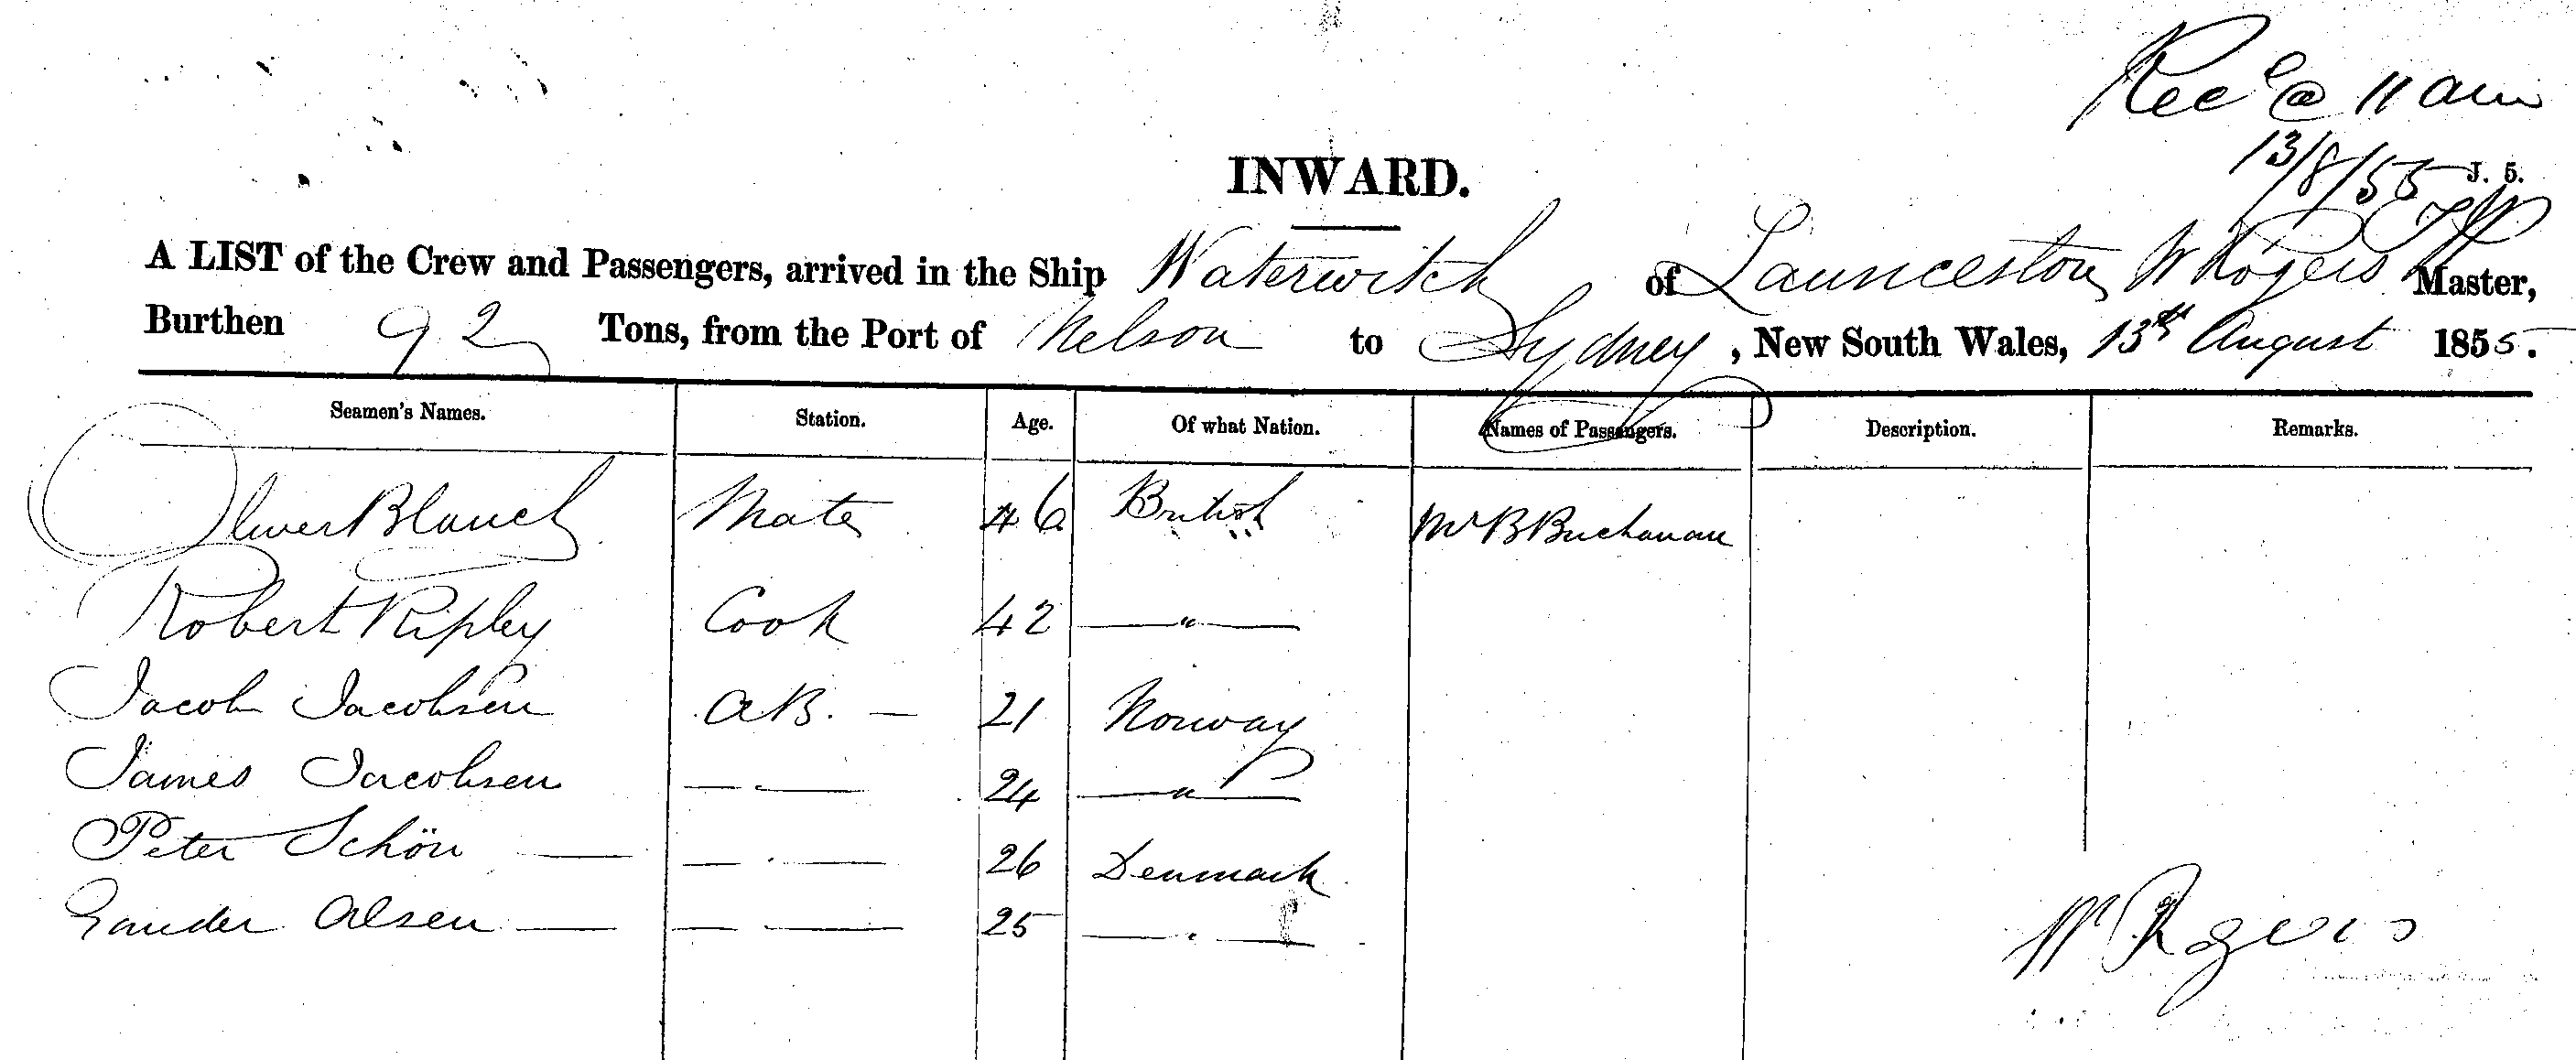 Recd @ 11 am
13/8/55
J. 5.
INWARD.
A LIST of the Crew and Passengers, arrived in the Ship Waterwitch of Launceston, W Rogers Master,
Burthen 92 Tons, from the Port of Nelson to Sydney, New South Wales, 13th August 1855.
Seamen's Names. Station. Age. Of what Nation. Names of Passengers. Description. Remarks.
Oliver Blanch Mate 46 British Mr B Buchanan
Robert Ripley Cook 42 — " —
Jacob Jacobsen AB. — 21 Norway
James Jacobsen — — 24 — " —
Peter Schön — — — 26 Denmark
Olsen — — — 25 — " —
W Rogers